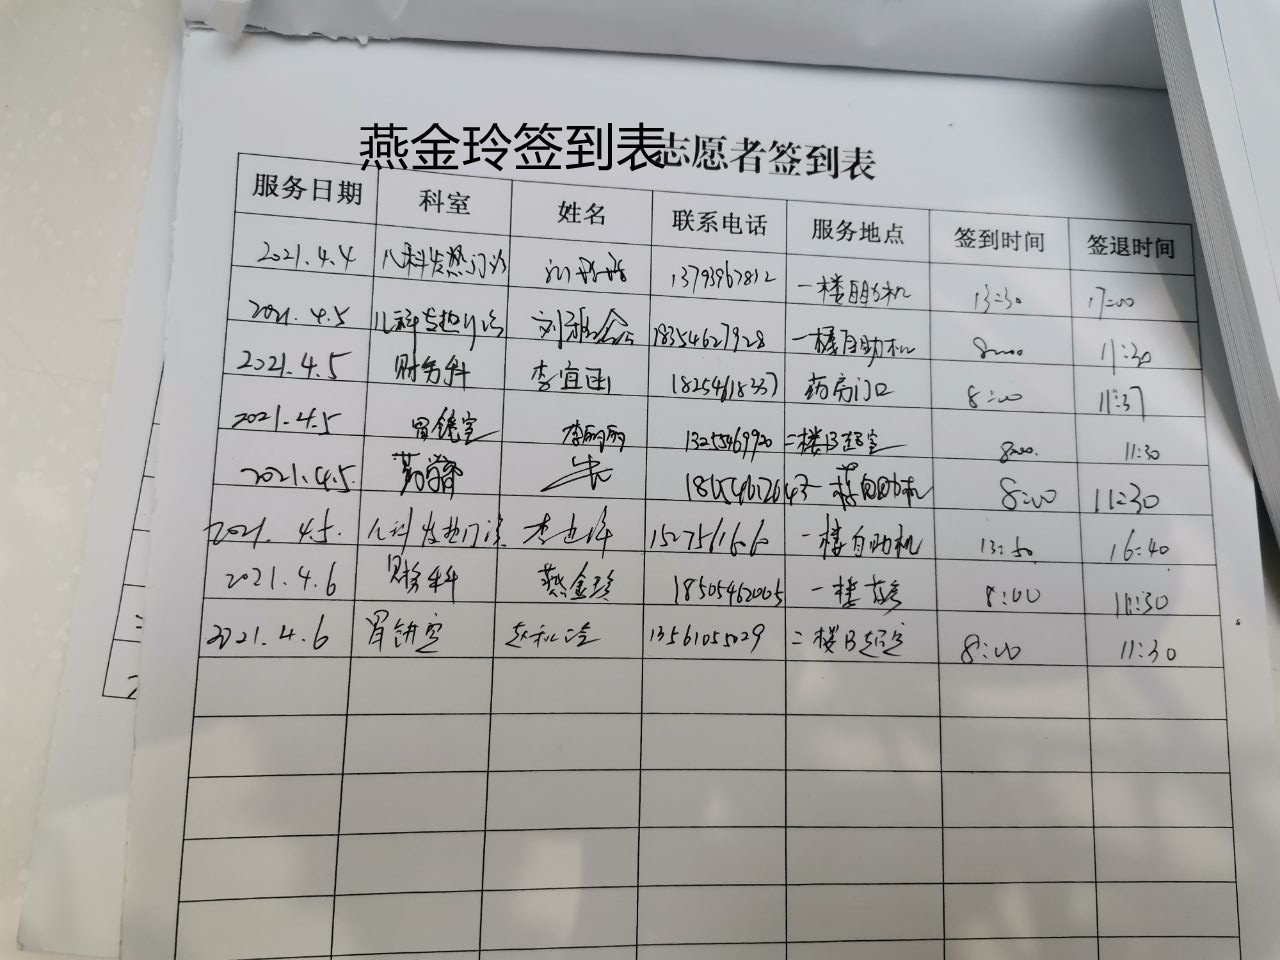 燕金玲签到表志愿者签到表
服务日期 科室 姓名 联系电话 服务地点 签到时间 签退时间
2021.4.4 儿科发热门诊 13793967812 一楼自助机 13:30 17:00
2021.4.5 儿科发热门诊 18354627928 一楼自助机 8:00 11:30
2021.4.5 财务科 李宜函 18254618337 药房门口 8:00 11:37
2021.4.5 胃镜室 李丽丽 13255469920 二楼B超室 8:00 11:30
2021.4.5 一楼自助机 8:00 11:30
2021.4.5 儿科发热门诊 一楼自助机 13:50 16:40
2021.4.6 财务科 燕金玲 18505462065 一楼 8:00 11:30
2021.4.6 胃镜室 13561055029 二楼B超室 8:00 11:30